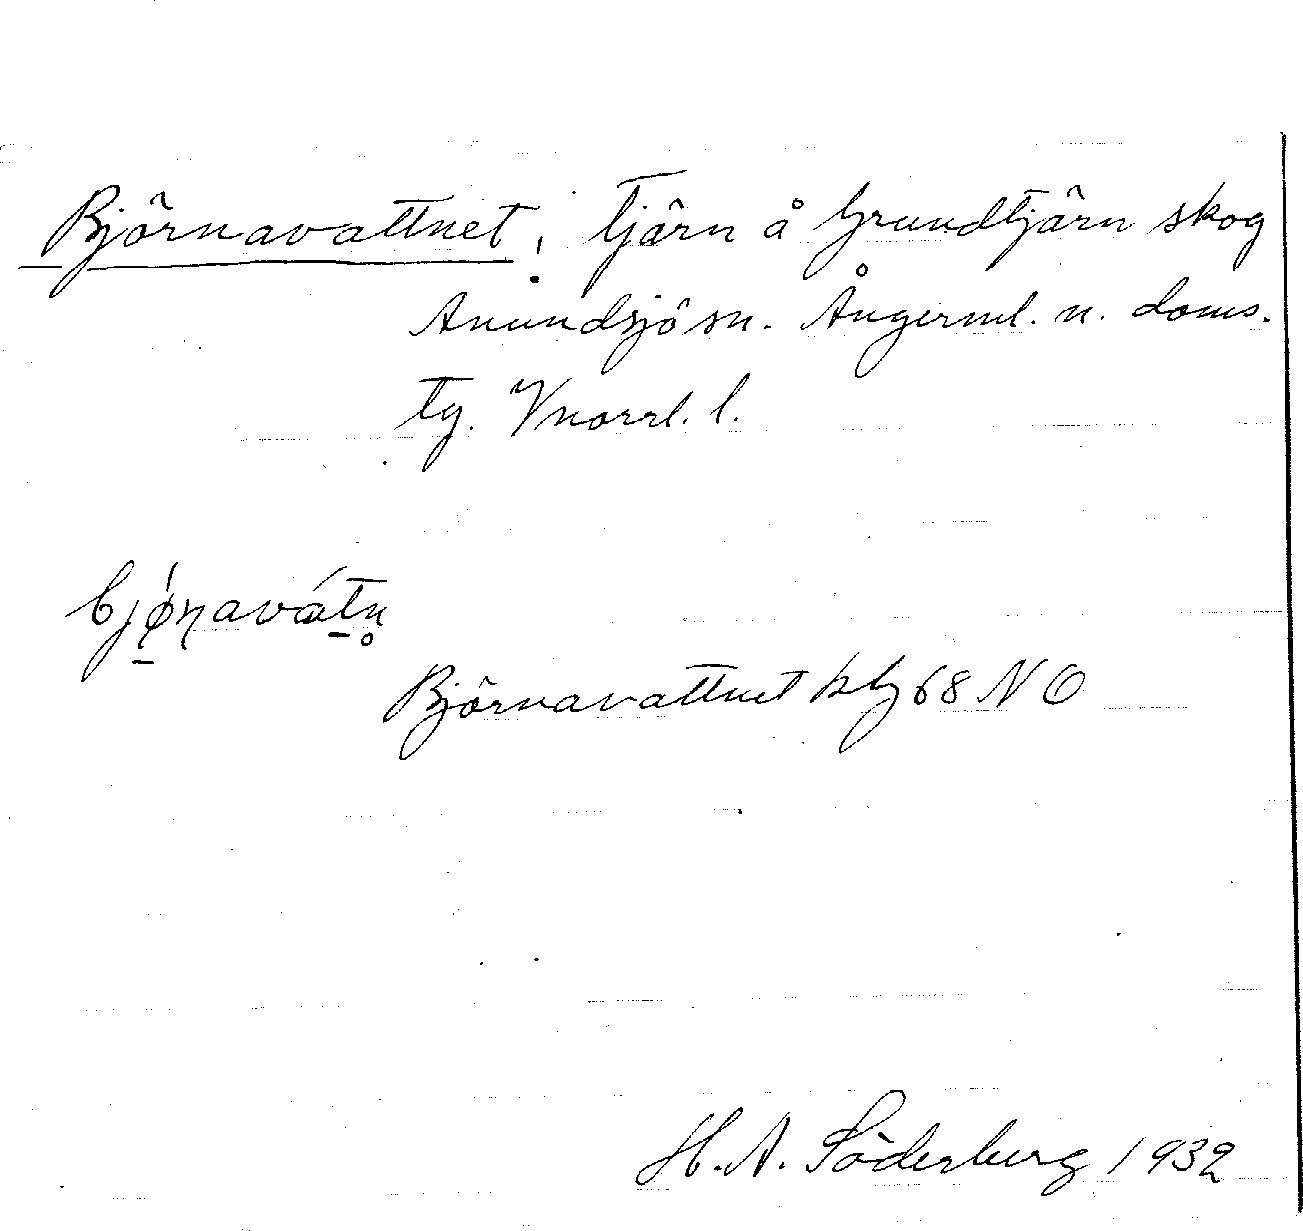 Björnavattnet, Tjärn å Grundtjärn skog
Anundsjö sn. Ångerml. n. doms.
tg. Vnorrl. l.
bjǿ̱ɳavát̲n̥
Björnavattnet kbl 68 NO
H. A. Söderberg 1932